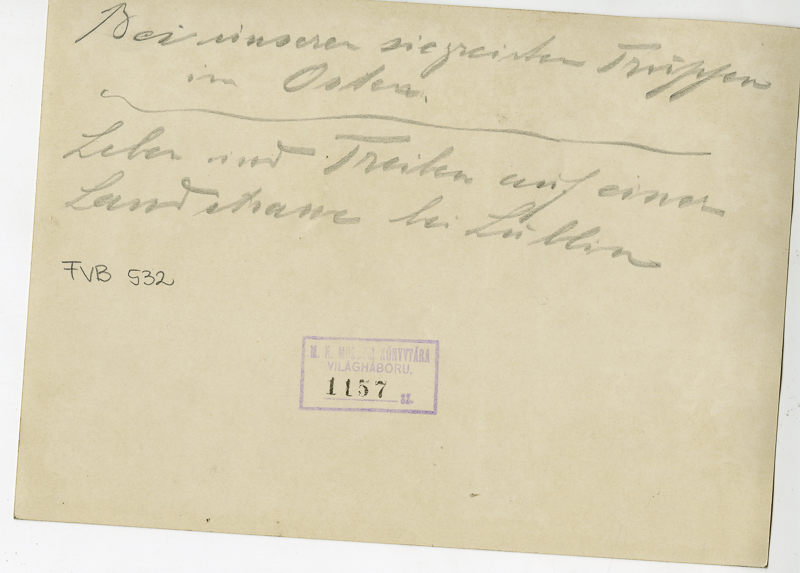 Bei unseren siegreichen Truppen
im Osten.
Leben und Treiben auf einer
Landstrasse bei Lublin
FVB 532
M. N. MÚZEUM KÖNYVTÁRA
VILÁGHÁBORU.
1157 sz.